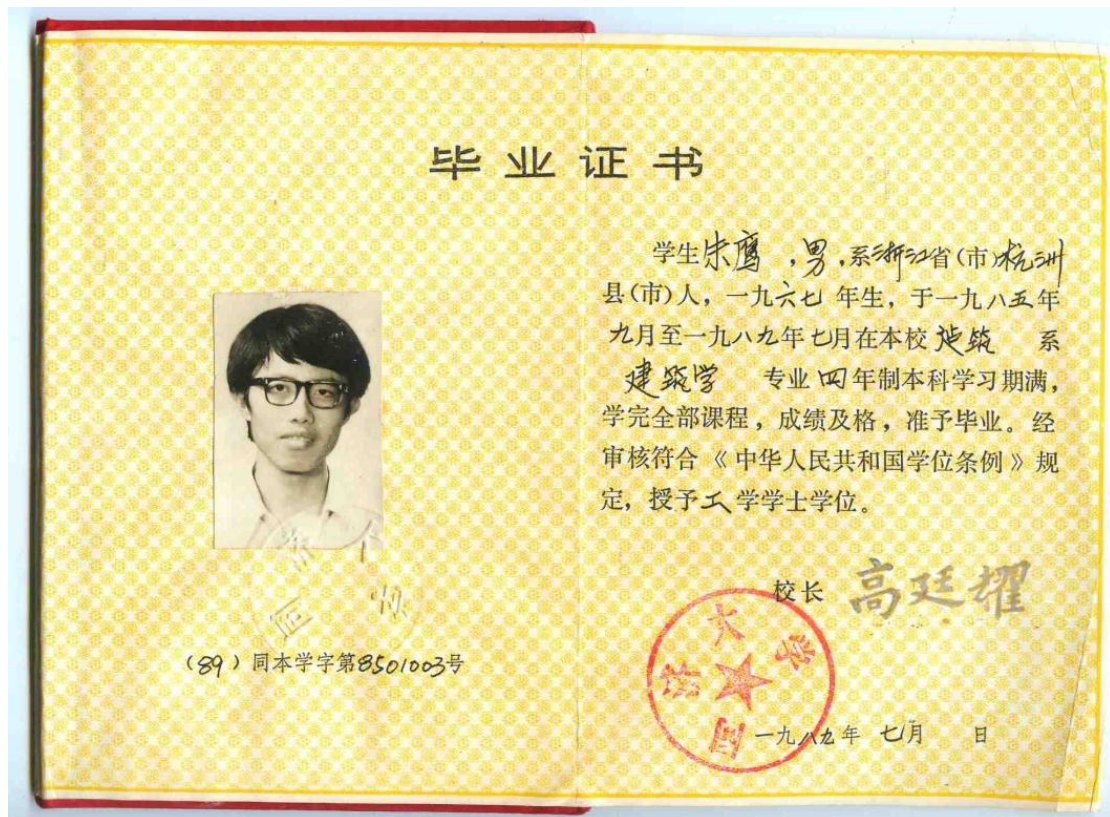 毕业证书
学生朱鹰,男,系浙江省(市)杭州
县(市)人,一九六七年生,于一九八五年
九月至一九八九年七月在本校建筑系
建筑学 专业四年制本科学习期满,
学完全部课程,成绩及格,准予毕业。经
审核符合《中华人民共和国学位条例》规
定,授予工学学士学位。
校长 高廷耀
(89)同本学字第8501003号
同济大学
一九八九年 七月 日